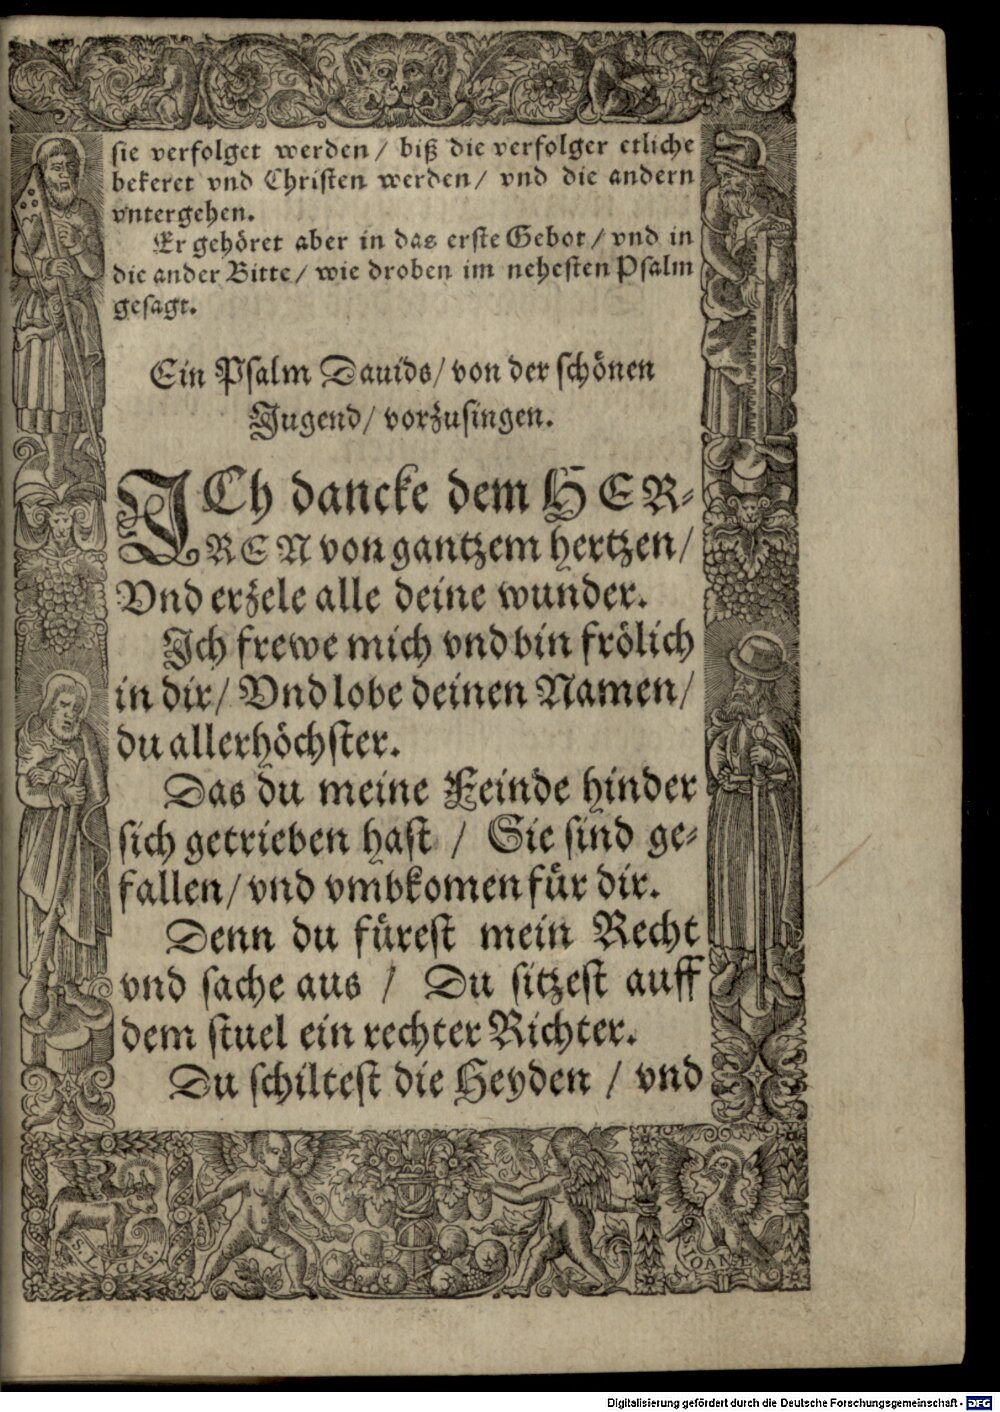 sie verfolget werden / biß die verfolger etliche
bekeret vnd Christen werden / vnd die andern
vntergehen.
Er gehöret aber in das erste Gebot / vnd in
die ander Bitte / wie droben im nehesten Psalm
gesagt.
Ein Psalm Dauids / von der schönen
Jugend / vorzusingen.
ICh dancke dem HER-
REN von gantzem hertzen /
Vnd erzele alle deine wunder.
Ich frewe mich vnd bin frölich
in dir / Vnd lobe deinen Namen /
du allerhöchster.
Das du meine Feinde hinder
sich getrieben hast / Sie sind ge-
fallen / vnd vmbkomen für dir.
Denn du fürest mein Recht
vnd sache aus / Du sitzest auff
dem stuel ein rechter Richter.
Du schiltest die Heyden / vnd
Digitalisierung gefördert durch die Deutsche Forschungsgemeinschaft - DFG